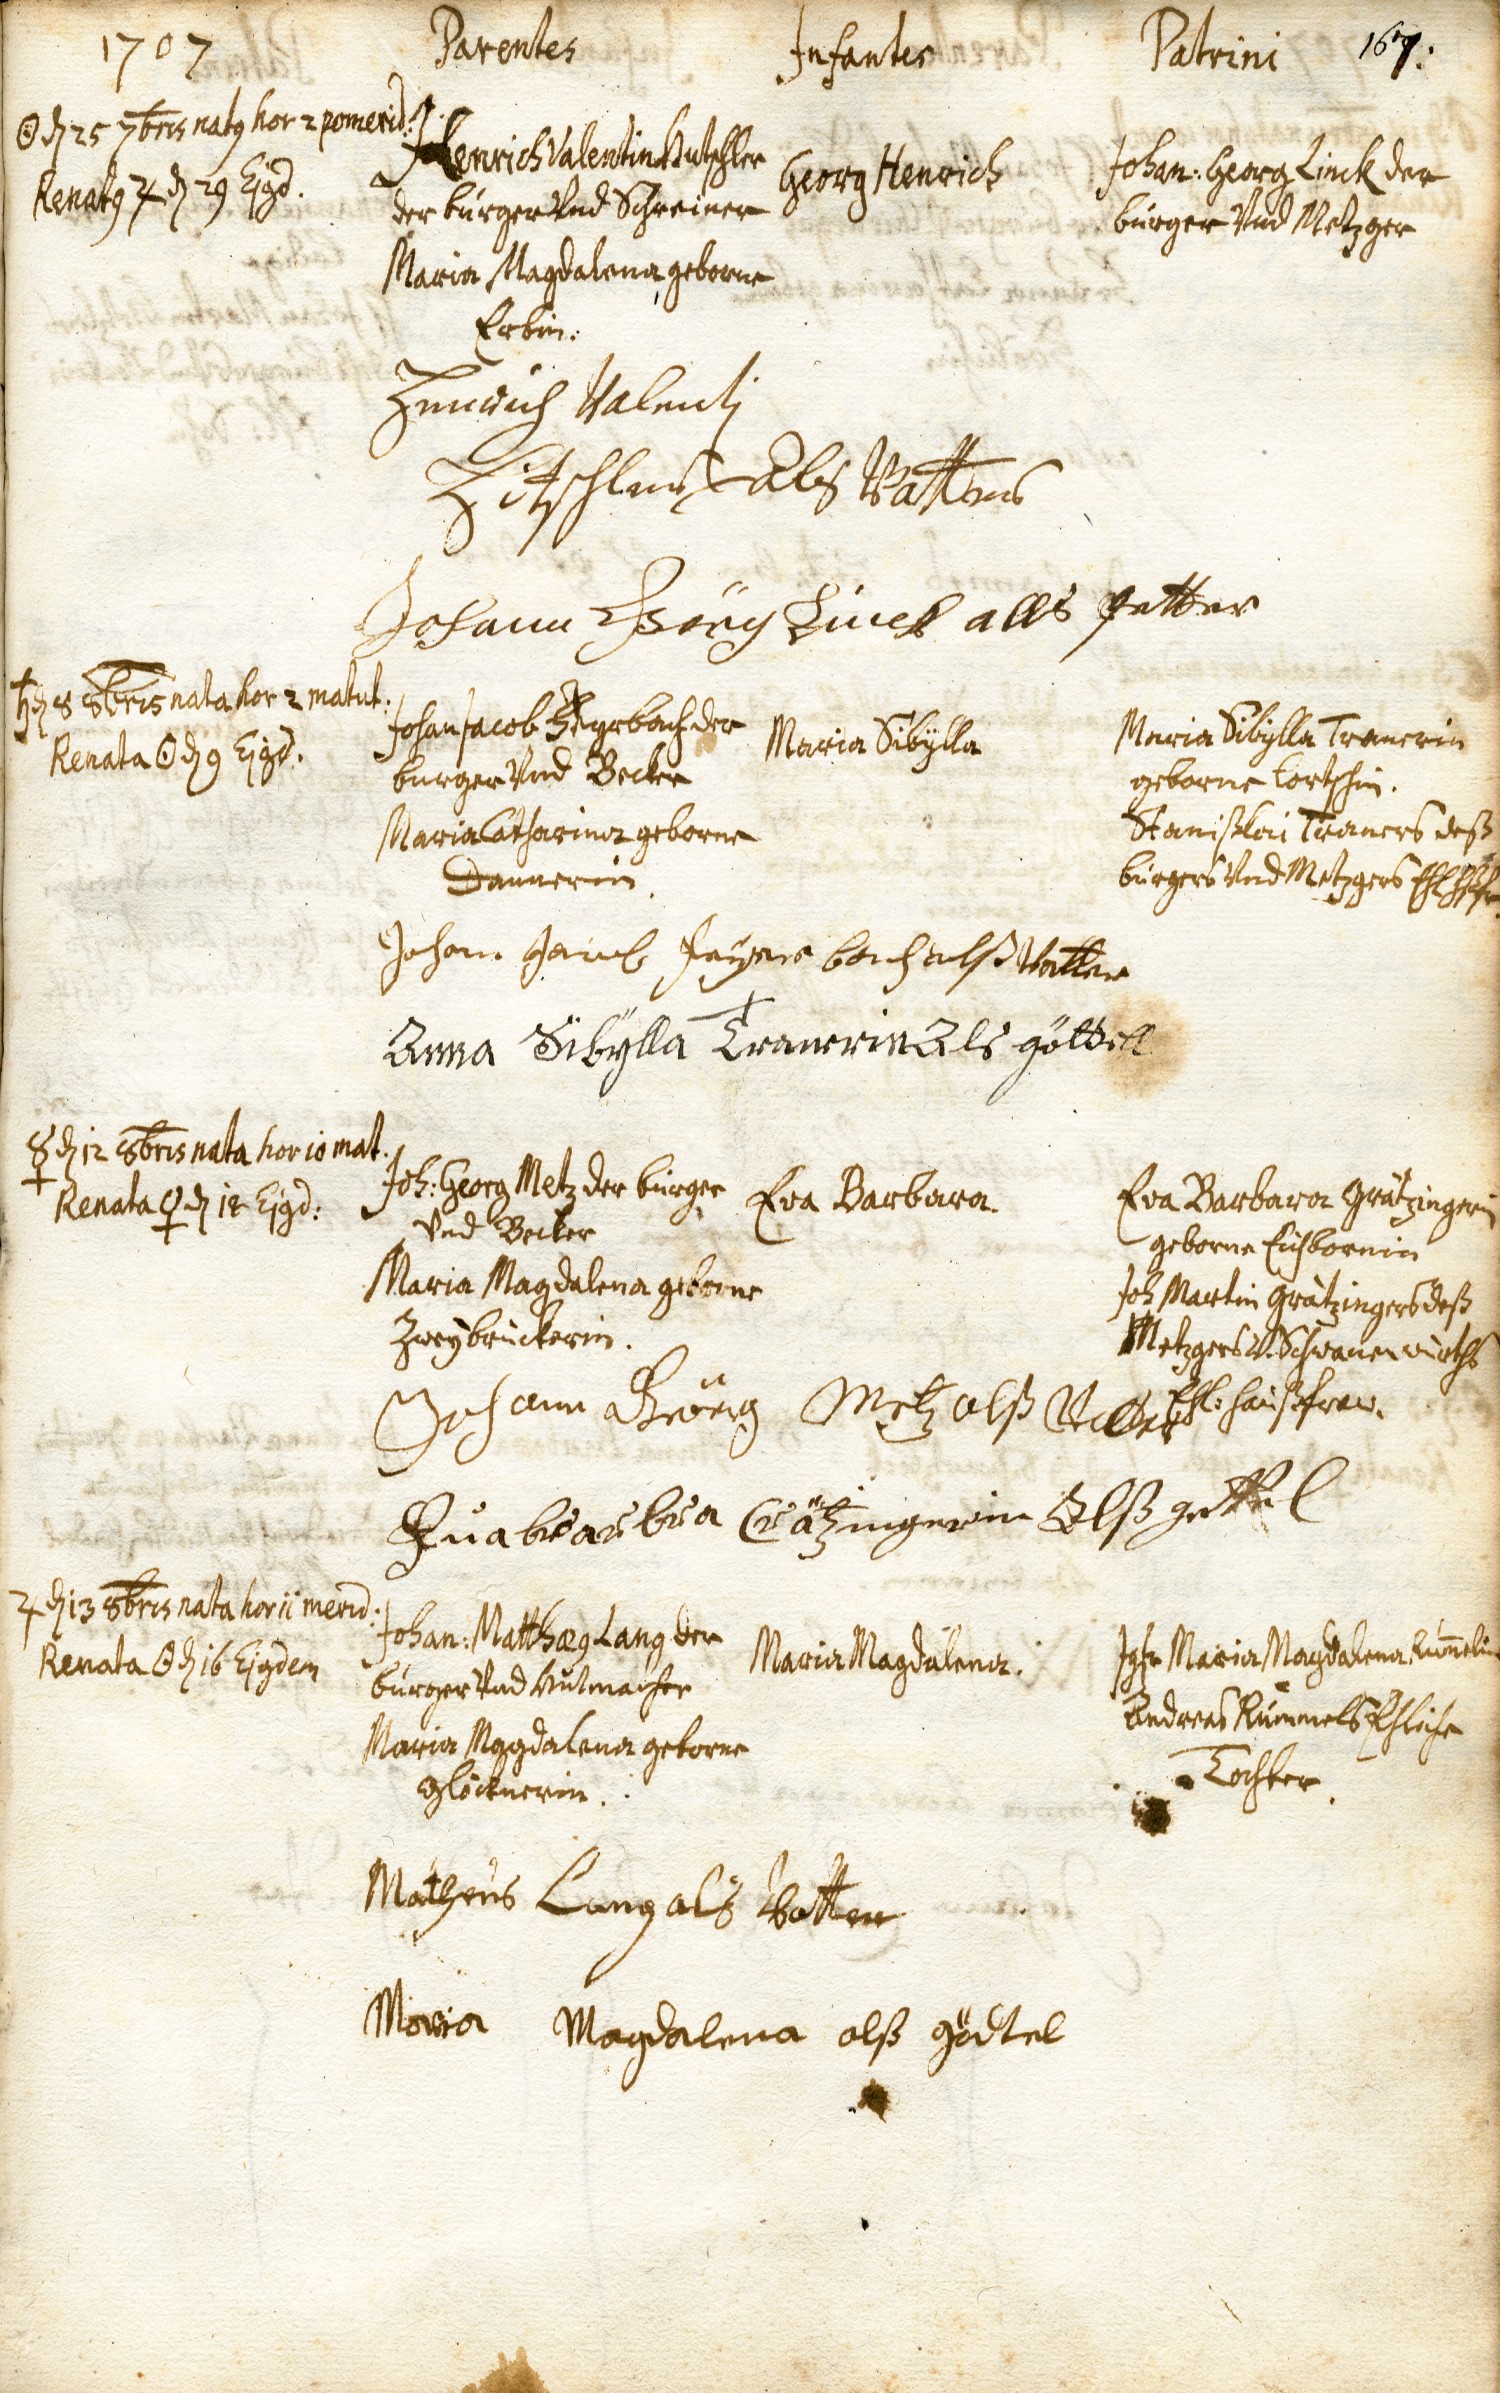 1707 Parentes Infantes Patrini 167:
☉ d 25 7bris natq hor 2 pomerid:
Renatq ♃ d 29 Ejqd.
Henrich Valentin Hutschler
der bürger Vnd Schreiner
Maria Magdalena geborne
Erbin:
Georg Henrich
Johan: Georg Linck der
bürger Vnd Metzger
Henrich Valenti
Hitschler Als Vatter
Johann Georg Linck alls Petter
♄ d 8 8bris nata hor 2 matut:
Renata ☉ d 9 Ejqd.
Johan Jacob der
burger Vnd Becker
Maria Catharina geborne
Dannerin.
Maria Sibÿlla
Maria Sibÿlla Tranerin
geborne
Stanißlai Traners deß
bürgers Vnd Metzgers
Johan Jacob Feÿerbach alß Vatter
Anna Sibÿlla Tranerin Als göttell
☿ d 12 8bris nata hor 10 mat.
Renata d 18 Ejqd:
Joh: Georg Metz der bürger
Vnd Becker
Maria Magdalena geborne
Zweÿbrückerin.
Eva Barbara.
Eva Barbara Grätzingerin
geborne Eichbornin
Joh Martin Grätzingers deß
Metzgers V. Schwanenwürths
Ehl: haußfraw.
Johann Georg Metz alß Vatter
Eua barbra Crätzingerin Alß gettel
♃ d 13 8bris nata hor 11 merid:
Renata ☉ d 16 Ejqdem
Johan: Matthæq Lang der
bürger Vnd Hutmacher
Maria Magdalena geborne
Glöcknerin.
Maria Magdalena.
Jgfr Maria Magdalena Rümelin
Andreas Rümmels Ehliche
Tochter.
Matheus Lang als Vatter
Maria Magdalena alß gödtel